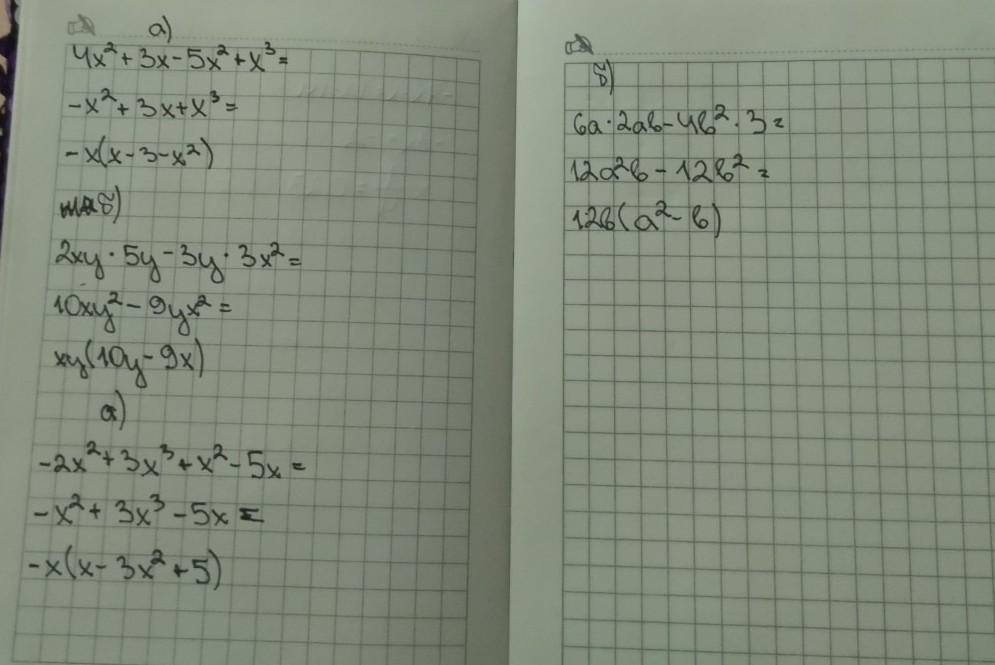 а)
4x² + 3x - 5x² + x³ =
-x² + 3x + x³ =
-x(x - 3 - x²)
б)
2xy · 5y - 3y · 3x² =
10xy² - 9yx² =
xy(10y - 9x)
а)
-2x² + 3x³ + x² - 5x =
-x² + 3x³ - 5x =
-x(x - 3x² + 5)
б)
6a · 2aв - 4в² · 3 =
12a²в - 12в² =
12в(a² - в)